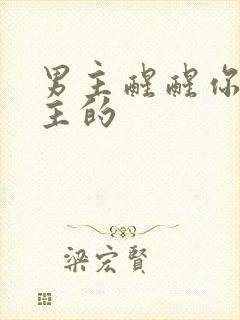 男主醒醒你
主的
梁宏賢